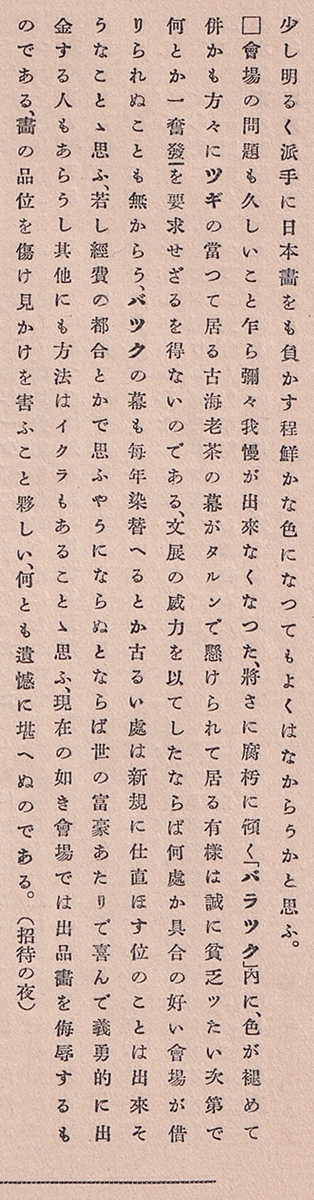 少し明るく派手に日本畫をも負かす程鮮かな色になつてもよくはなからうかと思ふ。
□會場の問題も久しいこと乍ら彌々我慢が出來なくなつた、將さに腐朽に傾く「バラツク」內に、色が褪めて
併かも方々にツギの當つて居る古海老茶の幕がタルンで懸けられて居る有樣は誠に貧乏ッたい次第で
何とか一奮發を要求せざるを得ないのである、文展の威力を以てしたならば何處か具合の好い會場が借
りられぬことも無からう、バツクの幕も每年染替へるとか古るい處は新規に仕直ほす位のことは出來そ
うなことゝ思ふ、若し經費の都合とかで思ふやうにならぬとならば世の富豪あたりで喜んで義勇的に出
金する人もあらうし其他にも方法はイクラもあることゝ思ふ、現在の如き會場では出品畫を侮辱するも
のである、畫の品位を傷け見かけを害ふこと夥しい、何とも遺憾に堪へぬのである。（招待の夜）